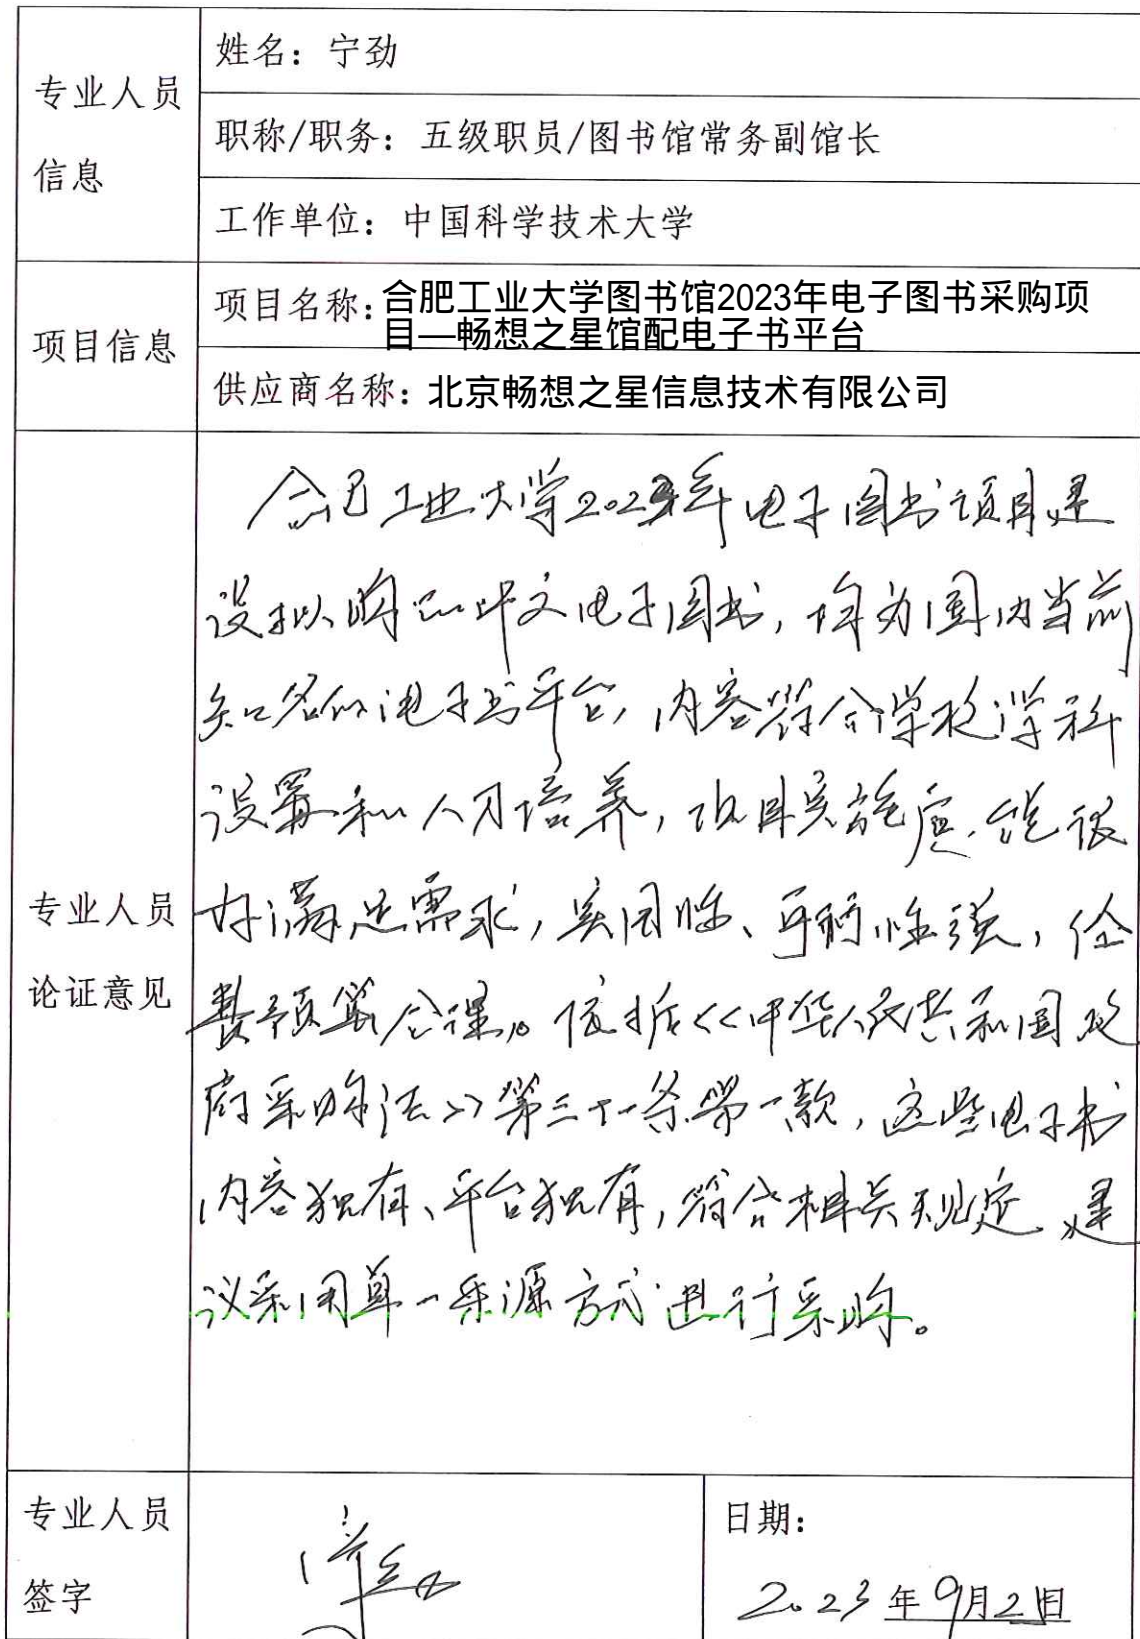 专业人员
信息
姓名：宁劲
职称/职务：五级职员/图书馆常务副馆长
工作单位：中国科学技术大学
项目信息
项目名称：合肥工业大学图书馆2023年电子图书采购项
目—畅想之星馆配电子书平台
供应商名称：北京畅想之星信息技术有限公司
专业人员
论证意见
合肥工业大学2023年电子图书项目建
设拟购的中文电子图书，均为国内当前
知名的电子书平台，内容符合学校学科
设置和人才培养，项目实施后，能很
好满足需求，实用性、可行性强，经
费预算合理。依据《中华人民共和国政
府采购法》第三十一条第一款，这些电子书
内容独有、平台独有，符合相关规定，建
议采用单一来源方式进行采购。
专业人员
签字
宁劲
日期：
2023年9月2日